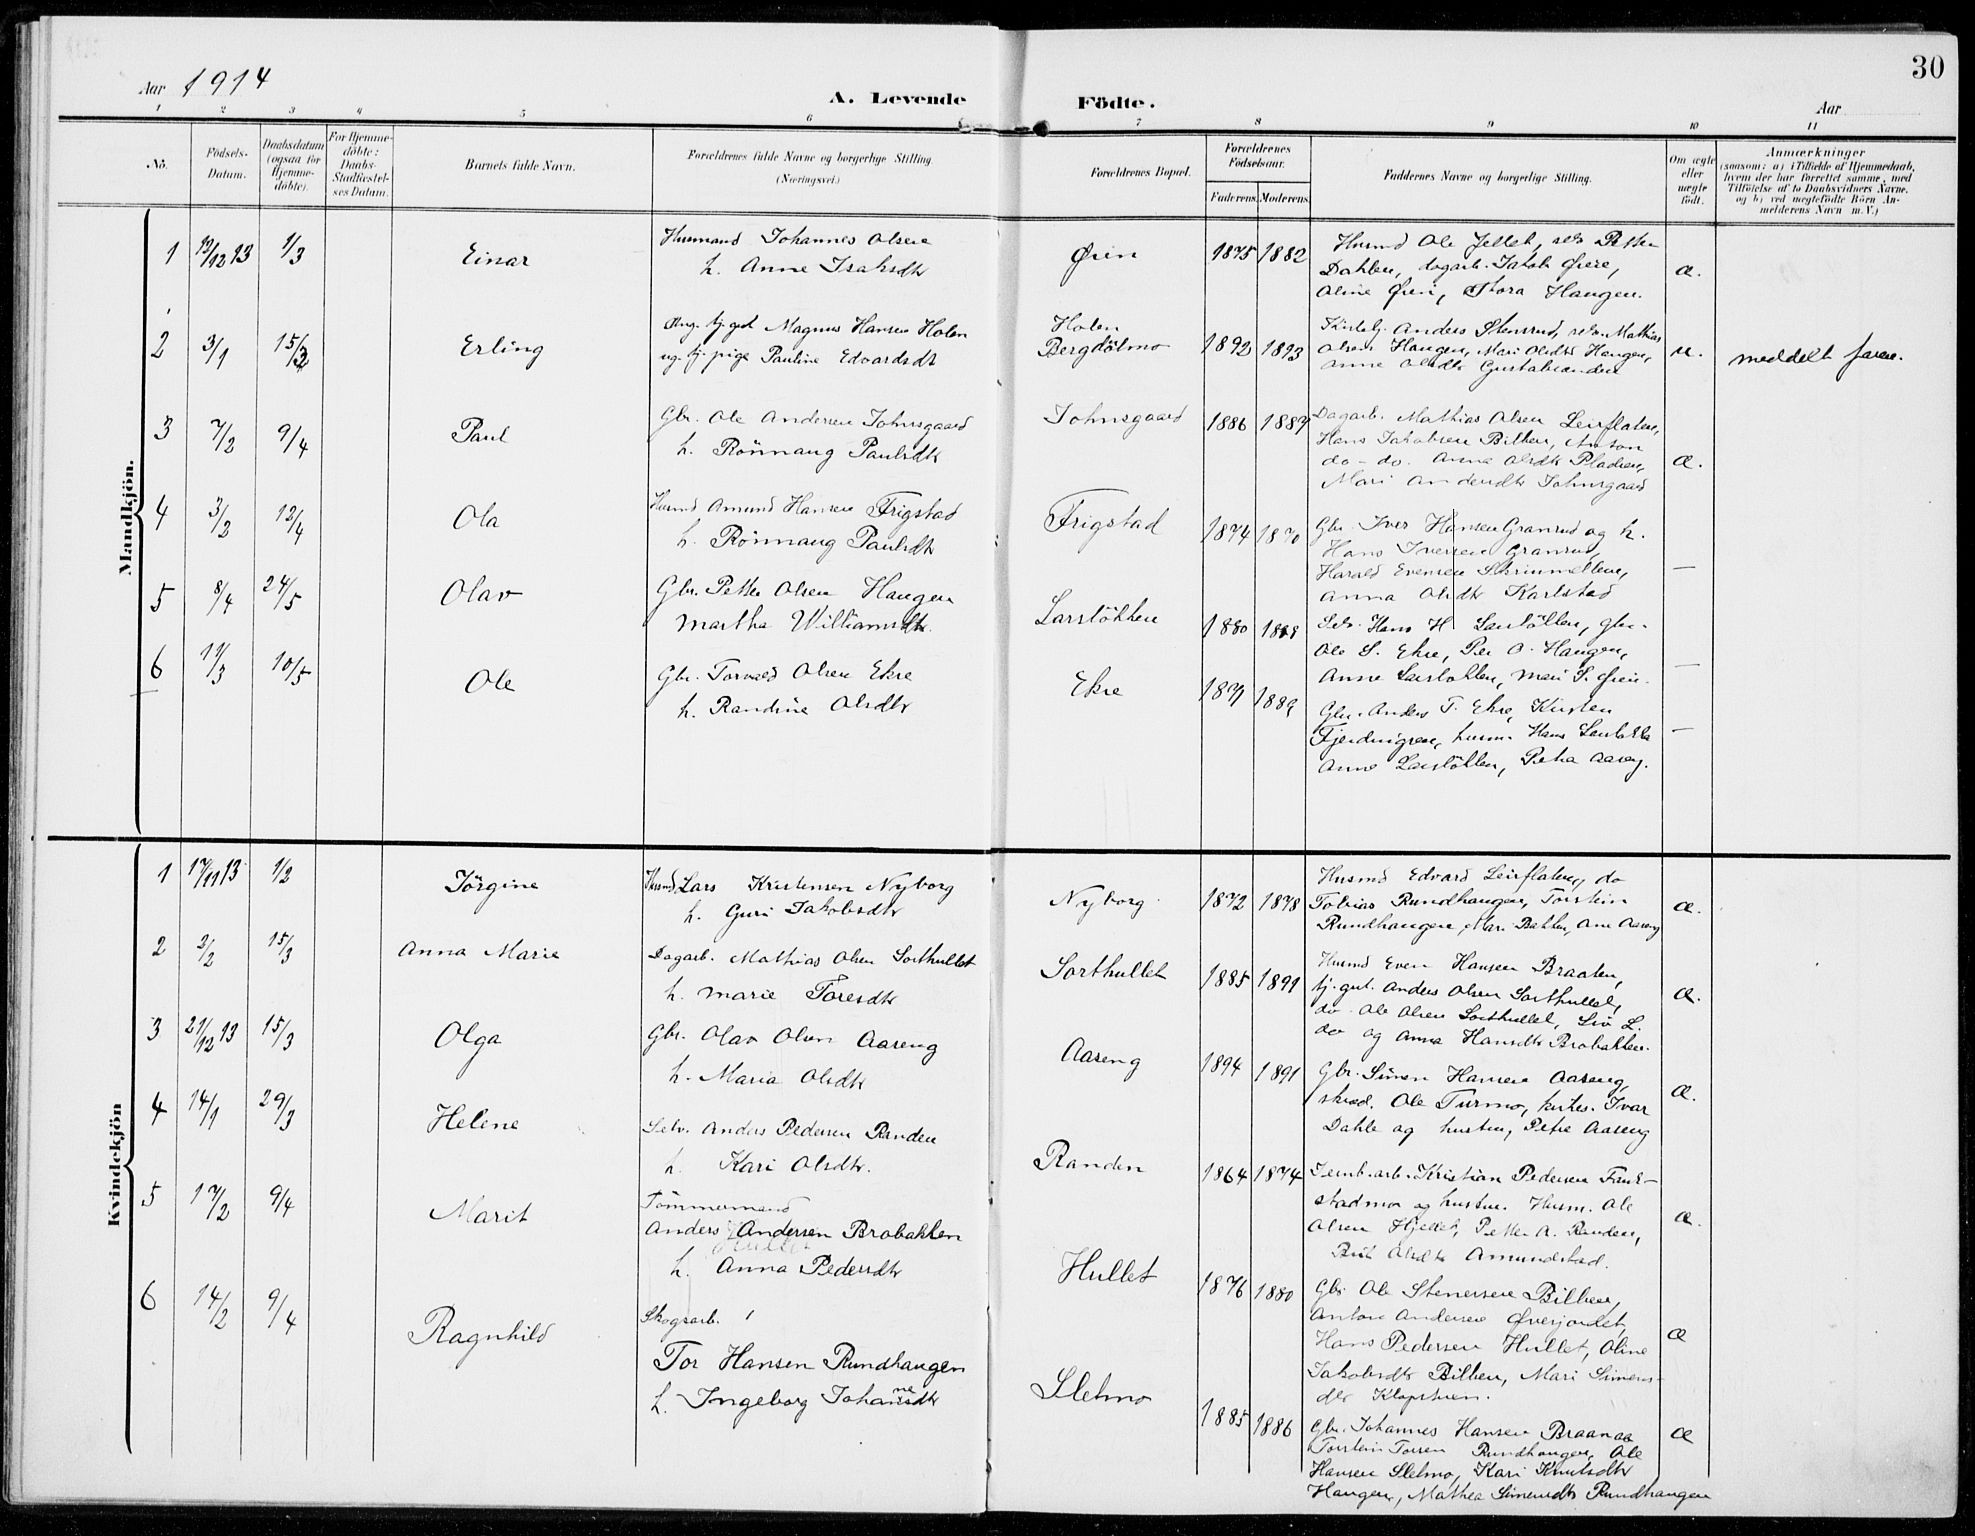 30
Aar 1914
A. Levende Födte.
Aar
1 2 3 4 5 6 7 8 9 10 11
No. Födsels-Datum. Daabsdatum (ogsaa for Hjemmedöbte). For Hjemmedöbte: Daabs-Stadfæstelses Datum. Barnets fulde Navn. Forældrenes fulde Navne og borgerlige Stilling. (Næringsvei.)
Forældrenes Bopæl. Forældrenes Födselsaar. Faderens. Moderens. Faddernes Navne og borgerlige Stilling. Om ægte eller uægte födt.
Anmærkninger
(saasom: a) i Tilfælde af Hjemmedaab,
hvem der har forrettet samme, med
Tilföielse af to Daabsvidners Navne,
og b) ved uægtefödte Börn An-
melderens Navn m. V.)
Mandkjön.
1 12/12 13 1/3 Einar Husmand Johannes Olsen
h. Anne Isaksdtr
Øien 1875 1882 Husmd Ole Jellet, selv Petter
Dahlen, dagarb. Jakob Øien,
Oline Øien, Thora Haugen.
æ.
2 3/1 15/3 Erling Ung. tj.gut Magnus Hansen Holen
ug. tj. pige Pauline Edvardsdtr
Holen
Bergdölmo 1892 1893 Anders Stensrud, selv Mathias
Olsen Haugen, Mari Olsdtr Haugen,
Anne Olsdtr
u. meddelt faren.
3 7/2 9/4 Paul Gbr. Ole Andersen Johnsgaard
h. Rönnaug Paulsdtr
Johnsgaard 1886 1887 Dagarb. Mathias Olsen Leirflaten,
Hans Jakobsen Bilben, Anton
do - do. Anna Olsdtr Pladsen,
Mari Andersdtr Johnsgaard
æ.
4 3/2 12/4 Ola Husmd Amund Hansen Frigstad
h. Rönnaug Paulsdtr
Frigstad 1874 1870 Gbr. Iver Hansen Granrud og h.
Hans Iversen Granrud,
Harald Evensen
Anna Olsdtr Karlstad
—
5 8/4 24/5 Olav Gbr. Petter Olsen Haugen
Martha Williamsdtr.
Larslökken 1880 1888 Selv. Hans H Larslökken, gbr.
Ole S. Ekre, Per O. Haugen,
Anne Larslökken, Mari S. Øien.
—
6 11/3 10/5 Ole Gbr. Torvald Olsen Ekre
h. Randine Olsdtr
Ekre 1889 Gbr. Anders T. Ekre, Kirsten
Fjerdingren, husm. Hans Larslökken
Anne Larslökken, Petra Aaseng.
—
Kvindekjön
1 17/11 13 1/2 Jörgine Husmd. Lars Kristensen Nyborg
h. Guri Jakobsdtr
Nyborg 1872 1878 Husmd Edvard Leirflaten, do
Tobias Rundhaugen, Torstein
Rundhaugen, Mari Bakken, Ane Aaseng
æ.
2 2/2 15/3 Anna Marie Dagarb. Mathias Olsen Sorthullet
h. Marie Toresdtr
Sorthullet 1885 1891 Husmd Even Hansen Braaten,
tj.gut. Anders Olsen Sorthullet,
do Ole Olsen Sorthullet, Siv L.
do og Anna Hansdtr Brobakken.
æ.
3 21/12 13 15/3 Olga Gbr. Olav Olsen Aaseng
h. Maria Olsdtr
Aaseng 1894 1891 Gbr. Simen Hansen Aaseng,
skræd. Ole Turmo, Ivar
Dahle og hustru, Petre Aaseng
æ.
4 14/1 29/3 Helene Selv. Anders Pedersen Randen
h. Kari Olsdtr.
Randen 1864 1874 Jernb.arb. Kristian Pedersen
og hustru. Husm. Ole
Olsen Hjedet, Petter A. Randen,
Brit Olsdtr Amundstad.
æ.
5 17/2 9/4 Marit Tömmermand
Anders Andersen Brobakken
Hullet
h. Anna Pedersdtr
Hullet 1876 1880 Gbr Ole Stenersen Bilben,
Anton Andersen Øverjordet,
Hans Pedersen Hullet, Oline
Jakobsdtr Bilben, Mari Simens-
dtr
æ
6 14/2 9/4 Ragnhild Skogsarb.
Tor Hansen Rundhaugen
h. Ingeborg Johannesdtr
Sletmo 1885 1886 Gbr. Johannes Hansen Braanaa
Torstein Torsen Rundhaugen, Ole
Hansen Sletmo, Kari Knutsdtr
Haugen, Mathea Simensdtr Rundhaugen
æ